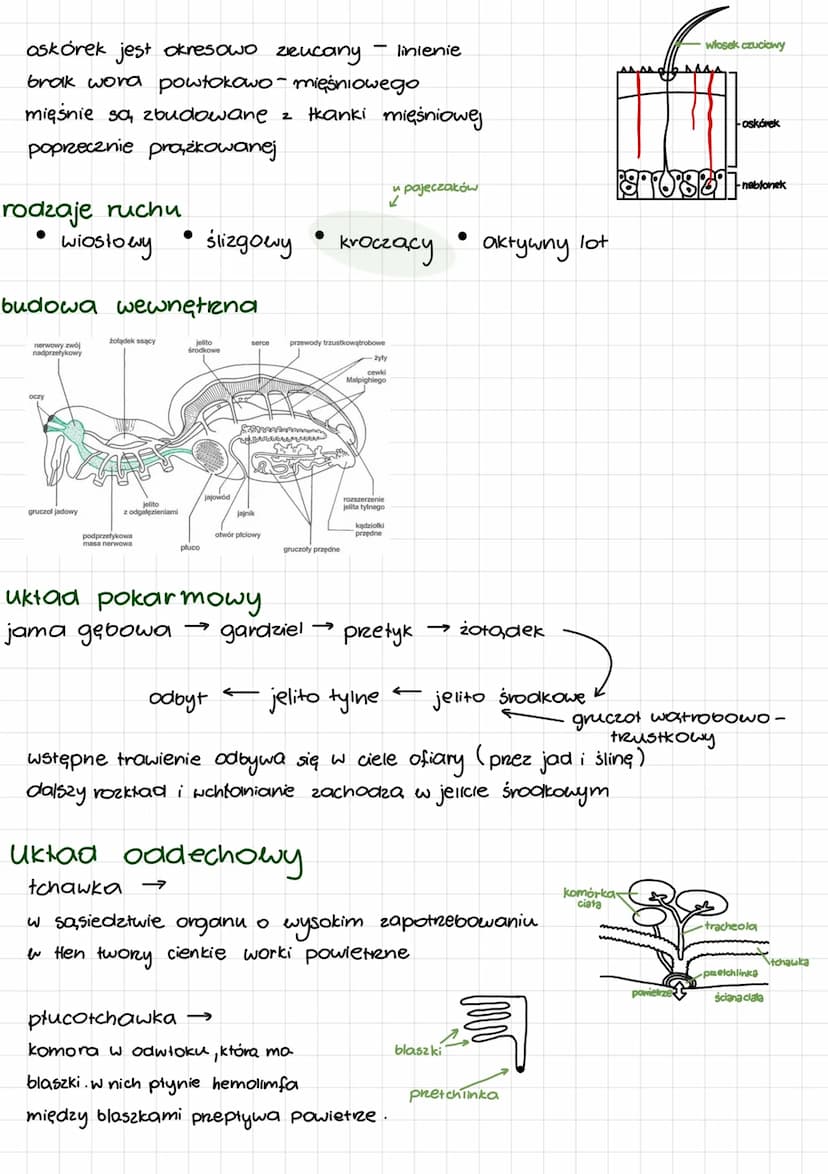 oskórek jest okresowo zrzucany - linienie
brak wora powłokowo - mięśniowego
mięśnie są zbudowane z tkanki mięśniowej
poprzecznie prążkowanej
włosek czuciowy
oskórek
nabłonek
u pajęczaków
rodzaje ruchu
• wiosłowy • ślizgowy • kroczący • aktywny lot
budowa wewnętrzna
nerwowy zwój
nadprzełykowy
żołądek ssący
jelito
środkowe
serce
przewody trzustkowątrobowe
żyły
cewki
Malpighiego
oczy
gruczoł jadowy
podprzełykowa
masa nerwowa
jelito
z odgałęzieniami
płuco
jajowód
otwór płciowy
jajnik
gruczoły przędne
rozszerzenie
jelita tylnego
kądziołki
przędne
układ pokarmowy
jama gębowa → gardziel → przełyk → żołądek
odbyt ← jelito tylne ← jelito środkowe
← gruczoł wątrobowo -
trzustkowy
wstępne trawienie odbywa się w ciele ofiary (przez jad i ślinę)
dalszy rozkład i wchłanianie zachodzą w jelicie środkowym
układ oddechowy
tchawka →
w sąsiedztwie organu o wysokim zapotrzebowaniu
w tlen tworzy cienkie worki powietrzne
komórka
ciała
tracheola
tchawka
przetchlinka
powietrze
ściana ciała
płucotchawka →
komora w odwłoku, która ma
blaszki. w nich płynie hemolimfa
między blaszkami przepływa powietrze.
blaszki
przetchlinka